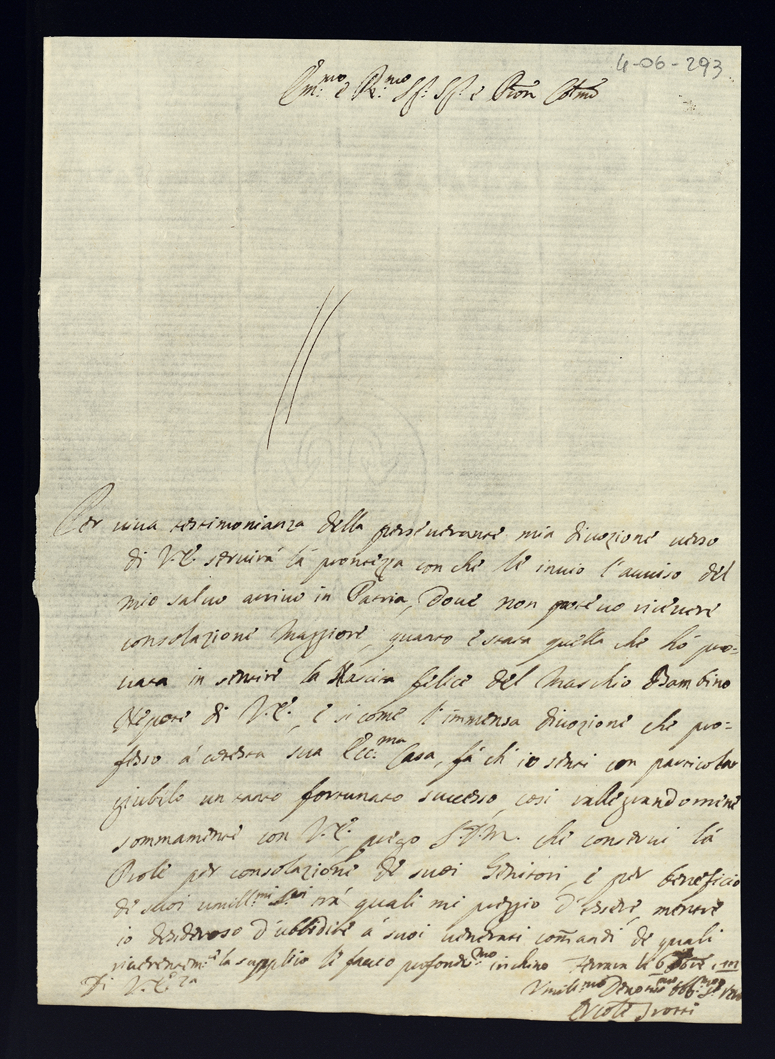 4-06-293
Em.mo e R.mo Sig.r Sig.r e Pron Col.mo
Per viva testimonianza della perseverante mia divozione verso
di V.E. servirà la prontezza con che le invio l'avviso del
mio salvo arrivo in Patria, Dove non potevo ricevere
consolazione maggiore, quanto è stata quella che hò pro=
vata in sentire la Nascita felice del Maschio Bambino
Nepote di V.E., e si come l'immensa divozione che pro=
fesso à cotesta sua Ecc.ma Casa, fà ch'io senti con particolar
giubilo un tanto fortunato successo, così rallegrandomene
sommamente con V.E. prego S.D.M. che conservi la
Prole per consolazione de suoi Genitori, e per beneficio
de suoi umill.mi Ser.ri trà quali mi preggio d'essere, mentre
io desideroso d'ubbidire à suoi venerati com̃andi de quali
riverentem.e la supplico le faccio profondis.mo inchino Ferrara li 6
Di V.E.za
Umilis.mo Devotis.mo Obb.mo
Ercole Trotti